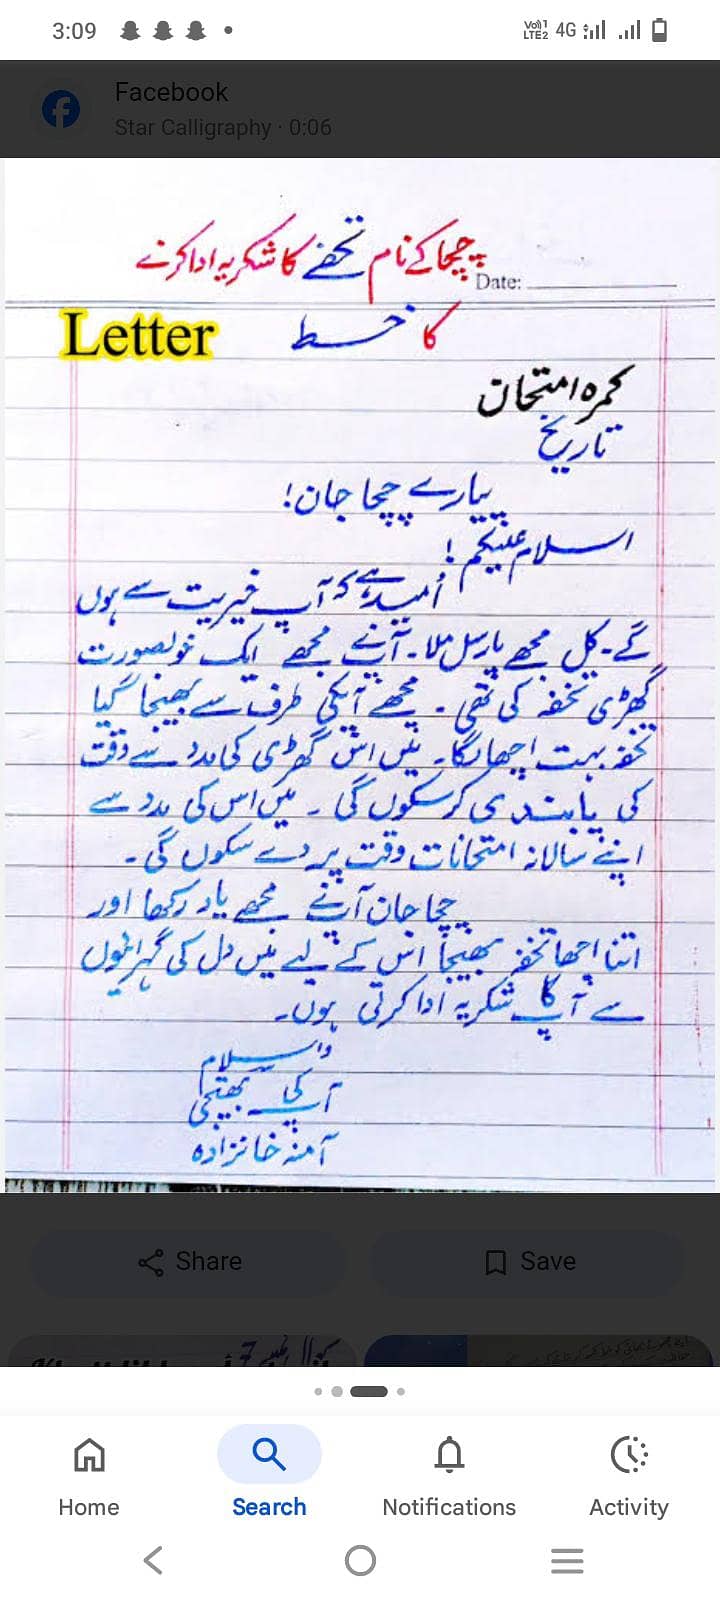 3:09
Vo))1 LTE2 4G
Facebook
Star Calligraphy · 0:06
چچا کے نام تحفے کا شکریہ ادا کرنے
Date:
کا خط
Letter
کمرہ امتحان
تاریخ
پیارے چچا جان!
اسلام علیکم!
اُمید ہے کہ آپ خیریت سے ہوں
گے۔ کل مجھے پارسل ملا۔ آپنے مجھے ایک خوبصورت
گھڑی تحفہ کی تھی۔ مجھے آپکی طرف سے بھیجا گیا
تحفہ بہت اچھا لگا۔ میں اس گھڑی کی مدد سے وقت
کی پابندی کر سکوں گی۔ میں اس کی مدد سے
اپنے سالانہ امتحانات وقت پر دے سکوں گی۔
چچا جان آپنے مجھے یاد رکھا اور
اتنا اچھا تحفہ بھیجا اس کے لیے میں دل کی گہرائیوں
سے آپ کا شکریہ ادا کرتی ہوں۔
واسلام
آپ کی بھتیجی
آمنہ خانزادہ
Share
Save
Home
Search
Notifications
Activity